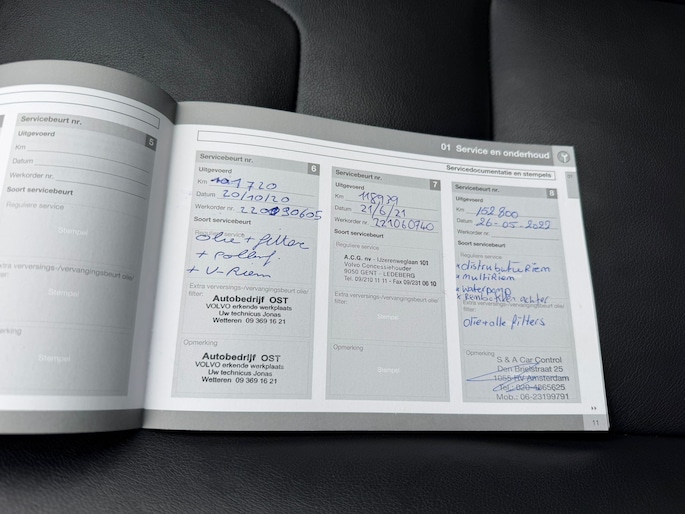 Servicebeurt nr.
5
Uitgevoerd
Km
Datum
Werkorder nr.
Soort servicebeurt
Reguliere service
Stempel
Extra verversings-/vervangingsbeurt olie/
filter:
Stempel
Opmerking
Stempel
01 Service en onderhoud
Servicedocumentatie en stempels
Servicebeurt nr.
6
Uitgevoerd
Km 101720
Datum 20/10/20
Werkorder nr.
Soort servicebeurt
Reguliere service
olie + filter
+ pollenf
+ V-Riem
Extra verversings-/vervangingsbeurt olie/
filter:
Autobedrijf OST
VOLVO erkende werkplaats
Uw technicus Jonas
Wetteren 09 369 16 21
Opmerking
Autobedrijf OST
VOLVO erkende werkplaats
Uw technicus Jonas
Wetteren 09 369 16 21
Servicebeurt nr.
7
Uitgevoerd
Km
Datum 21/6/21
Werkorder nr. 221060740
Soort servicebeurt
Reguliere service
A.C.G. nv - IJzerenweglaan 101
Volvo Concessiehouder
9050 GENT - LEDEBERG
Tel. 09/210 11 11 - Fax 09/231 06 10
Extra verversings-/vervangingsbeurt olie/
filter:
Stempel
Opmerking
Stempel
Servicebeurt nr.
8
Uitgevoerd
Km 152800
Datum 26-05-2022
Werkorder nr.
Soort servicebeurt
Reguliere service
* distributieRiem
* multiRiem
* waterpomp
* Remblokken achter
Extra verversings-/vervangingsbeurt olie/
filter:
olie+alle filters
Opmerking
S & A Car Control
Den Brielstraat 25
1055 RV Amsterdam
Tel.: 020-4865625
Mob.: 06-23199791
11